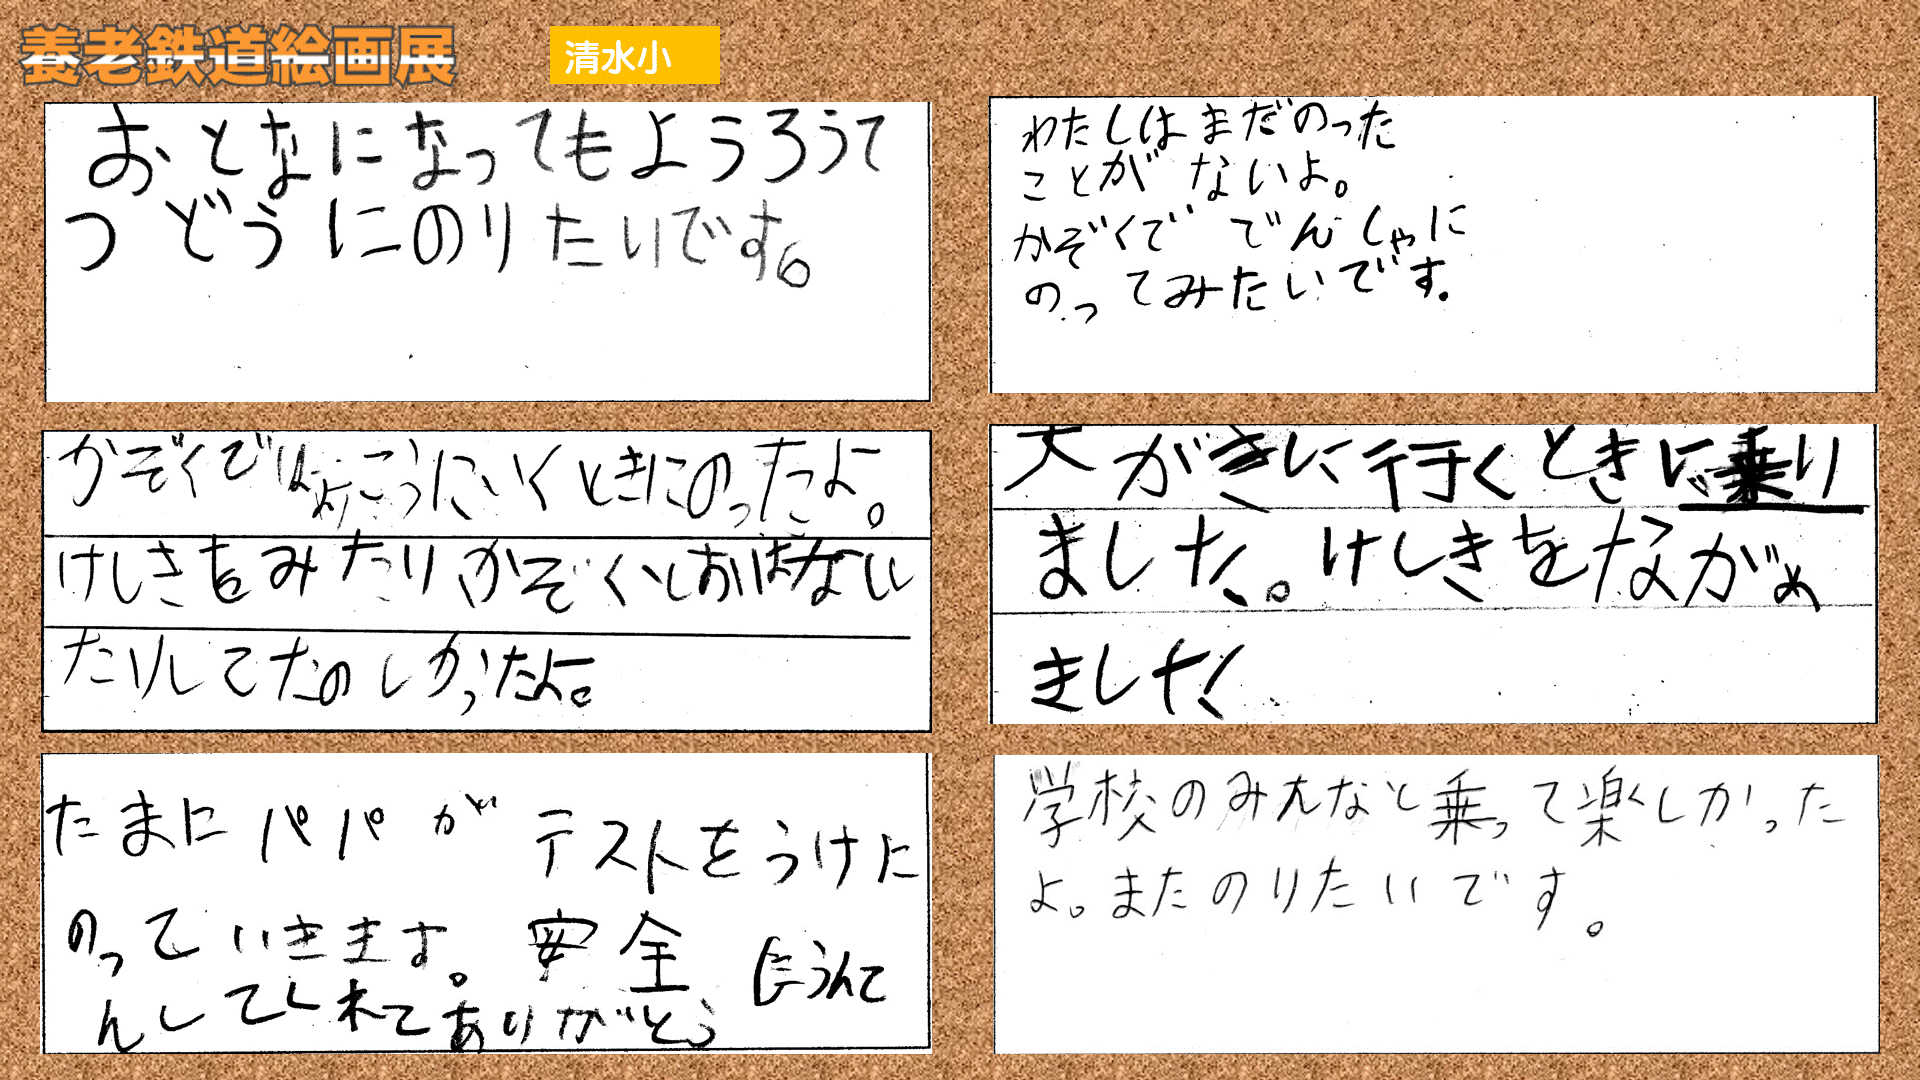 養老鉄道絵画展
清水小
おとなになってもようろうて
つどうにのりたいです。
わたしはまだのった
ことがないよ。
かぞくででんしゃに
のってみたいです。
かぞくでりょこうにいくときにのったよ。
けしきをみたりかぞくとしおはなし
たりしてたのしかったよ。
大がきに行くときに乗り
ました。けしきをながめ
ました
たまにパパがテストをうけに
のっていきます。安全にうんて
んしてくれてありがとう
学校のみんなと乗って楽しかった
よ。またのりたいです。